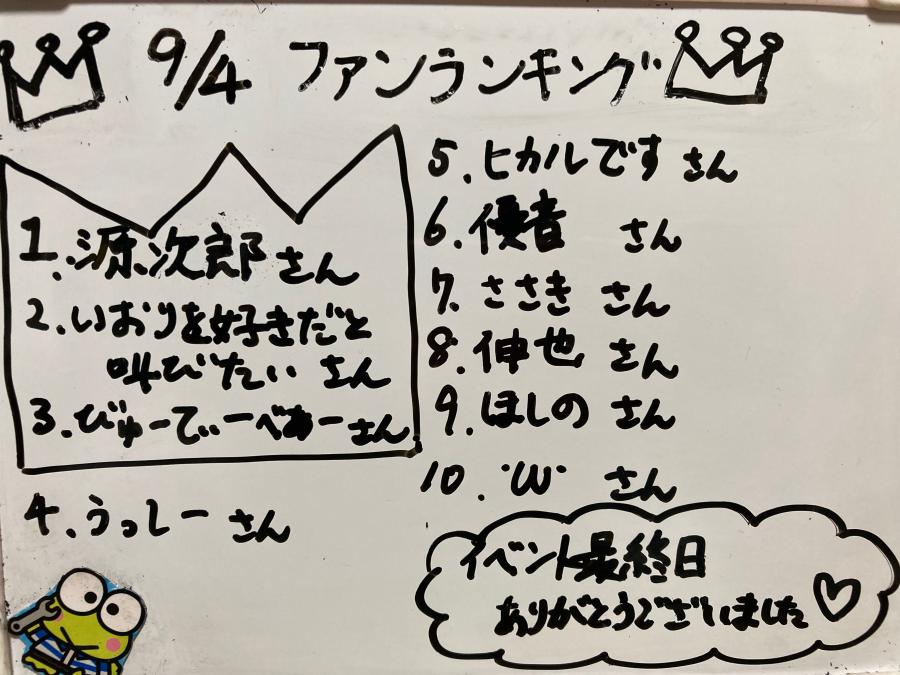 9/4 ファンランキング
1. 源次郎さん
2. いおりを好きだと
叫びたい さん
3. びゅーてぃーべあーさん
4. うっしー さん
5. ヒカルです さん
6. 優者 さん
7. ささき さん
8. 伸也 さん
9. ほしの さん
10. 'ω' さん
イベント最終日
ありがとうございました♡